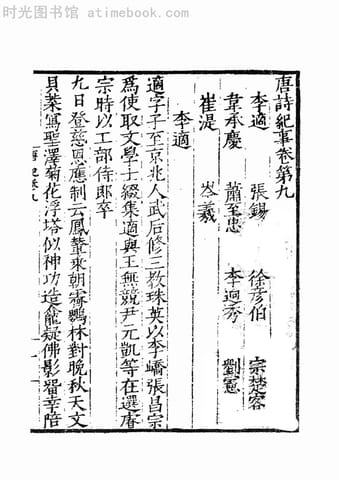 时光图书馆 - www.atimebook.com
唐詩紀事卷第九
李適 張錫 徐彦伯 宗楚客
韋承慶 蕭至忠 李迥秀 劉憲
崔湜 岑羲
李適
適字子至京兆人武后修三教珠英以李嶠張昌宗
爲使取文學士綴集適與王無競尹元凱等在選睿
宗時以工部侍郎卒
九日登慈恩應制云鳳輦乘朝霽鸚林對晚秋天文
貝葉寫聖澤菊花浮塔似神功造龕疑佛影留幸陪